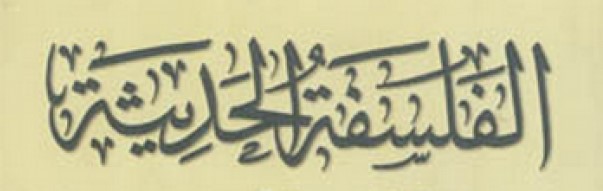 الفلسفة الحديثة